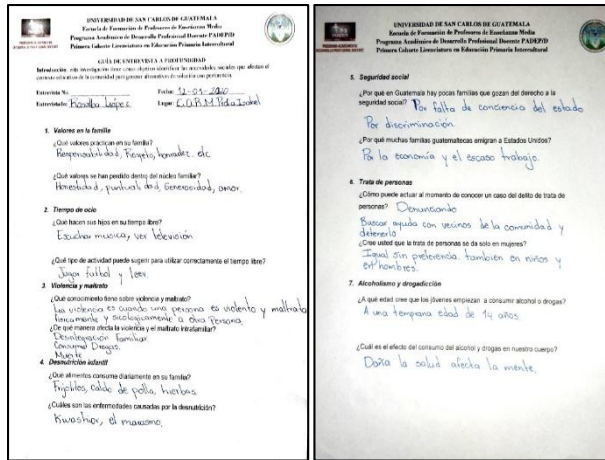 UNIVERSIDAD DE SAN CARLOS DE GUATEMALA
Escuela de Formación de Profesores de Enseñanza Media
Programa Académico de Desarrollo Profesional Docente PADEP/D
Primera Cohorte Licenciatura en Educación Primaria Intercultural
GUÍA DE ENTREVISTA A PROFUNDIDAD
Introducción: esta investigación tiene como objetivo identificar las necesidades sociales que afectan el
contexto educativo de la comunidad para generar alternativas de solución con pertinencia.
Entrevista No.
Fecha: 12-01-2020
Entrevistado: Rosalba López
Lugar: C.O.R.M. Rida Isabel
1. Valores en la familia
¿Qué valores practican en su familia?
Responsabilidad, Respeto, honradez, etc
¿Qué valores se han perdido dentro del núcleo familiar?
Honestidad, puntualidad, Generosidad, amor.
2. Tiempo de ocio
¿Qué hacen sus hijos en su tiempo libre?
Escuchar musica, ver televisión
¿Qué tipo de actividad puede sugerir para utilizar correctamente el tiempo libre?
Jugar futbol y leer.
3. Violencia y maltrato
¿Qué conocimiento tiene sobre violencia y maltrato?
La violencia es cuando una persona es violento y maltrata
fisicamente y sicologicamente a otra Persona.
¿De qué manera afecta la violencia y el maltrato intrafamiliar?
Desintegración Familiar
Consumo Drogas.
Muerte
4. Desnutrición infantil
¿Qué alimentos consume diariamente en su familia?
Frijoles, caldo de pollo, hierbas.
¿Cuáles son las enfermedades causadas por la desnutrición?
Kwashior, el marasmo.
UNIVERSIDAD DE SAN CARLOS DE GUATEMALA
Escuela de Formación de Profesores de Enseñanza Media
Programa Académico de Desarrollo Profesional Docente PADEP/D
Primera Cohorte Licenciatura en Educación Primaria Intercultural
5. Seguridad social
¿Por qué en Guatemala hay pocas familias que gozan del derecho a la
seguridad social? Por falta de conciencia del estado
Por discriminación.
¿Por qué muchas familias guatemaltecas emigran a Estados Unidos?
Por la economía y el escaso trabajo.
6. Trata de personas
¿Cómo puede actuar al momento de conocer un caso del delito de trata de
personas? Denunciando
Buscar ayuda con vecinos de la comunidad y
detenerlo
¿Cree usted que la trata de personas se da solo en mujeres?
Igual sin preferencia, tambien en niños y
en hombres.
7. Alcoholismo y drogadicción
¿A qué edad cree que los jóvenes empiezan a consumir alcohol o drogas?
A una temprana edad de 14 años
¿Cuál es el efecto del consumo del alcohol y drogas en nuestro cuerpo?
Daña la salud afecta la mente.